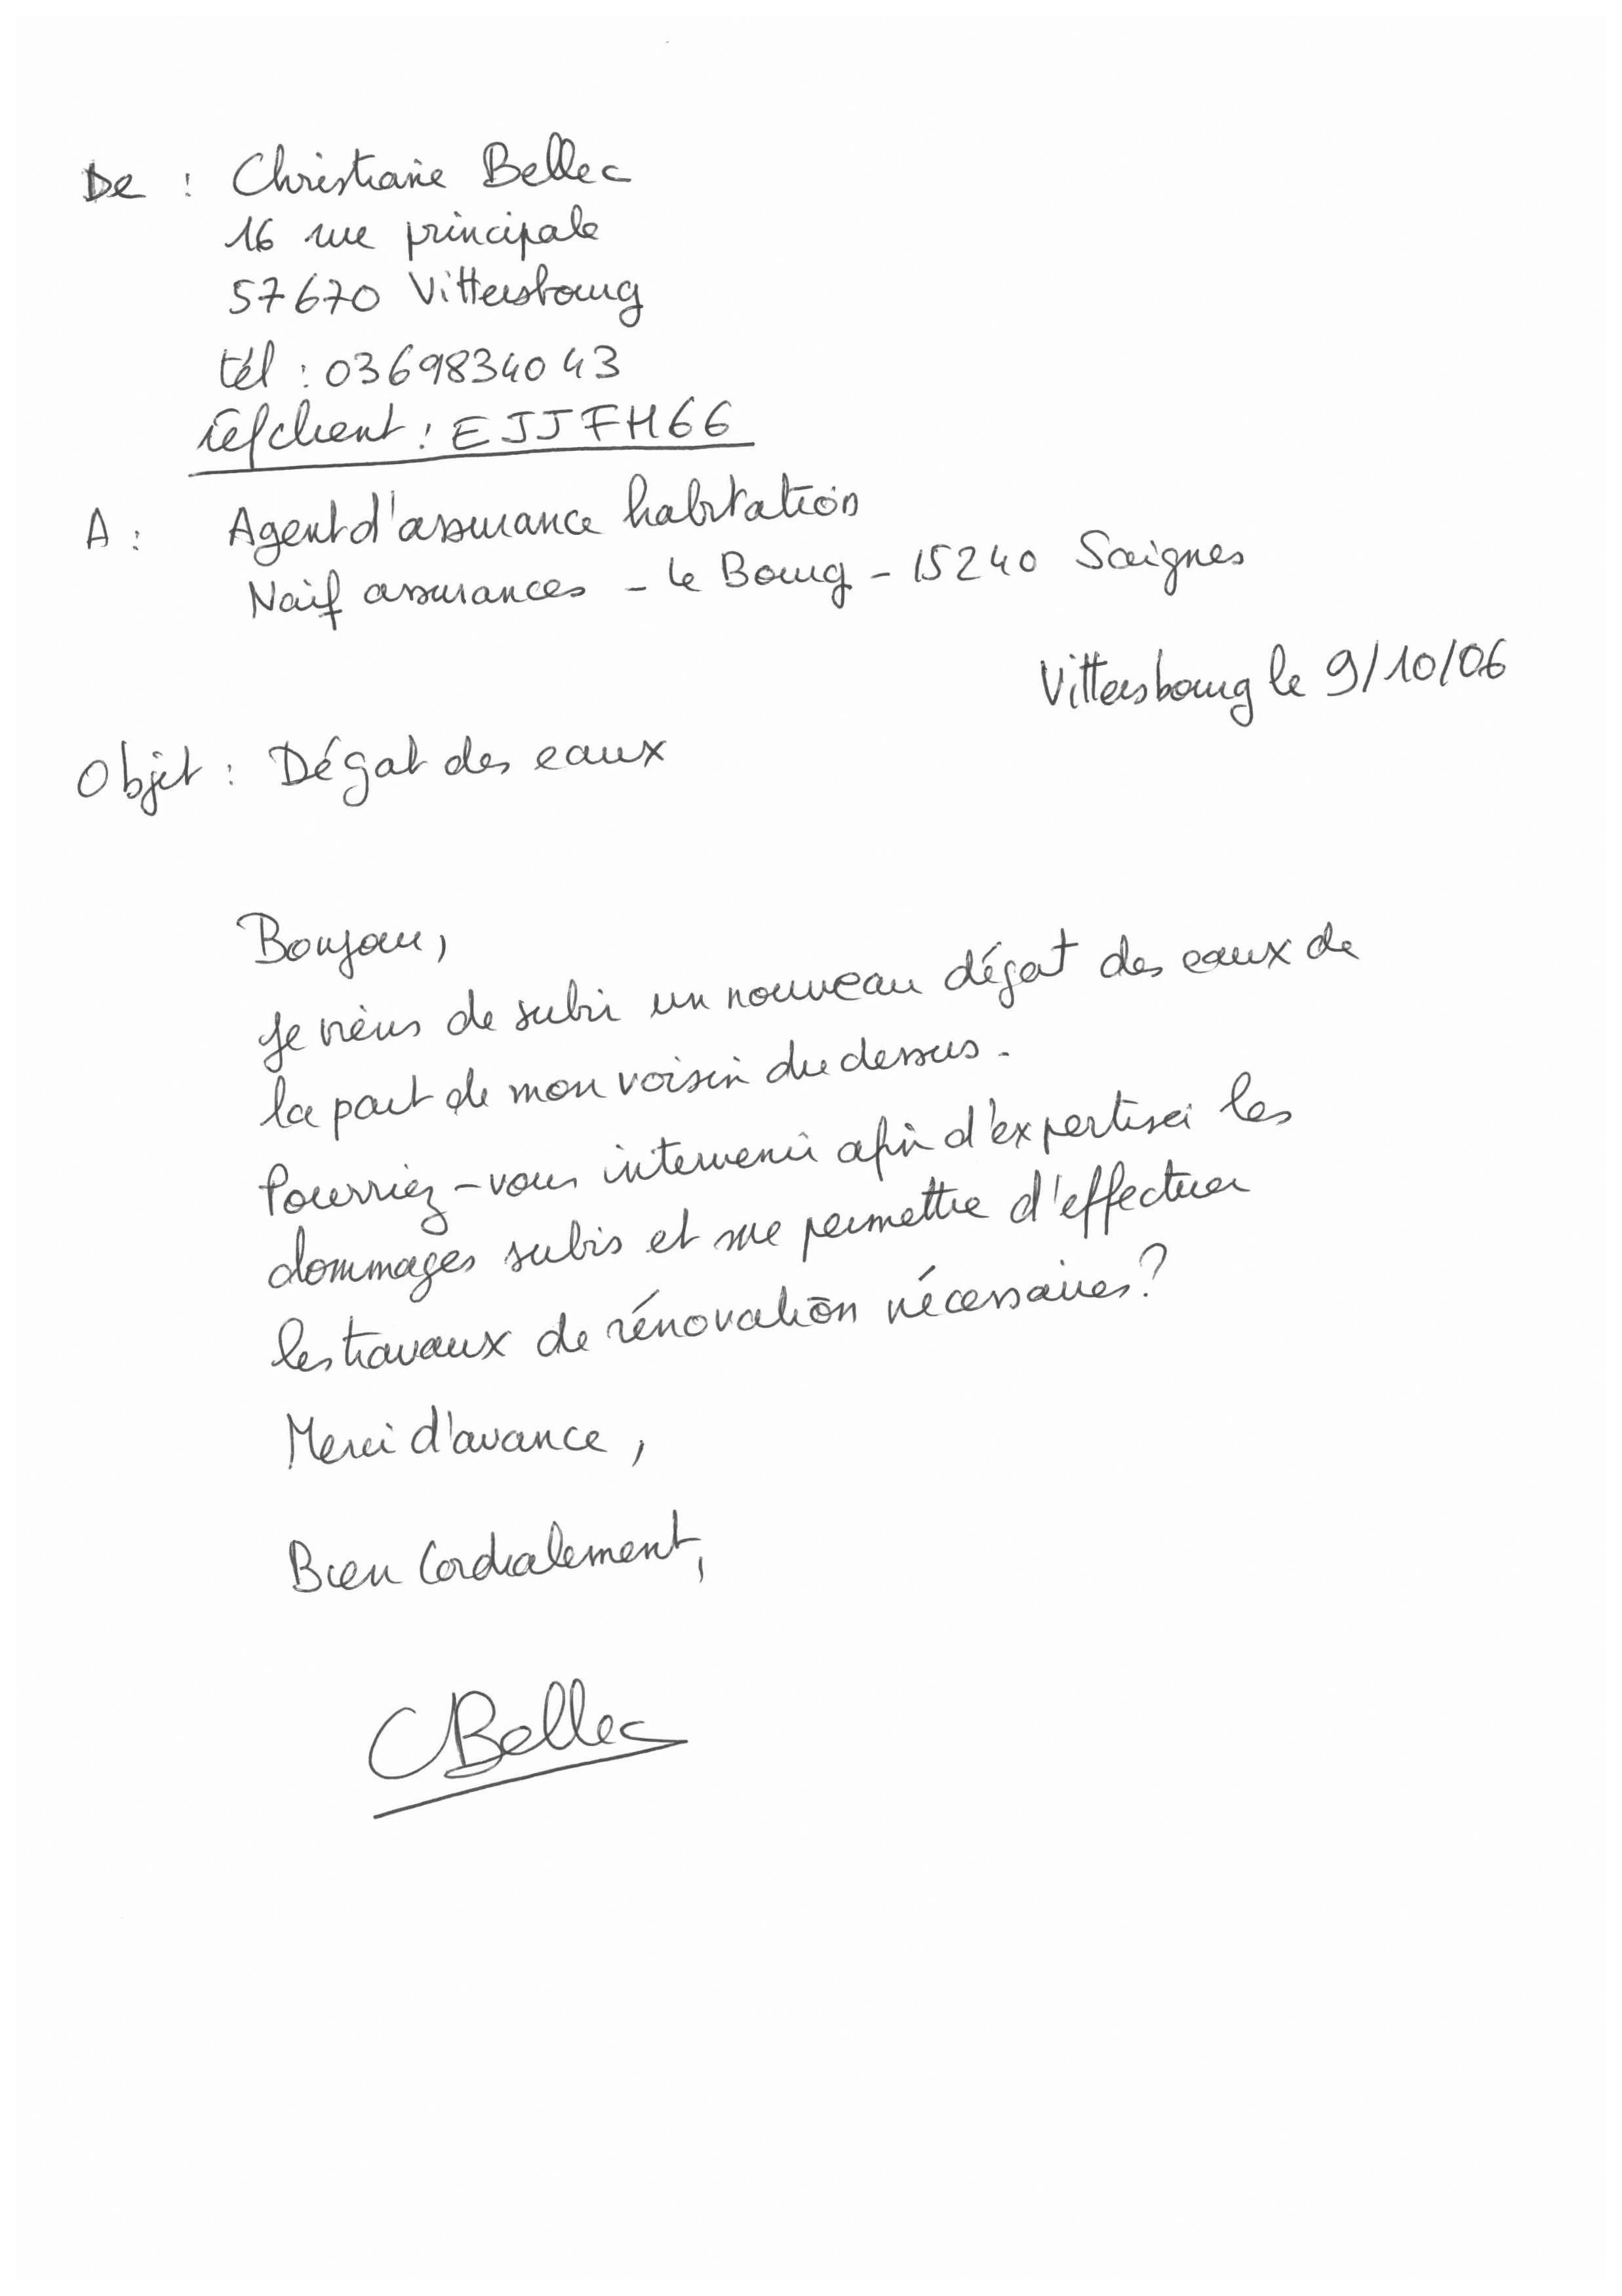 De : Christiane Bellec
16 rue principale
57670 Vittersbourg
tél : 0369834043
réf client : EJJFH66
A : Agent d'assurance habitation
Naïf assurances - le Bourg - 15240 Saignes
Vittersbourg le 9/10/06
Objet : Dégat des eaux
Bonjour,
Je viens de subir un nouveau dégat des eaux de
la part de mon voisin du dessus.
Pourriez-vous intervenir afin d'expertiser les
dommages subis et me permettre d'effectuer
les travaux de rénovation nécessaires?
Merci d'avance,
Bien Cordialement,
CBellec